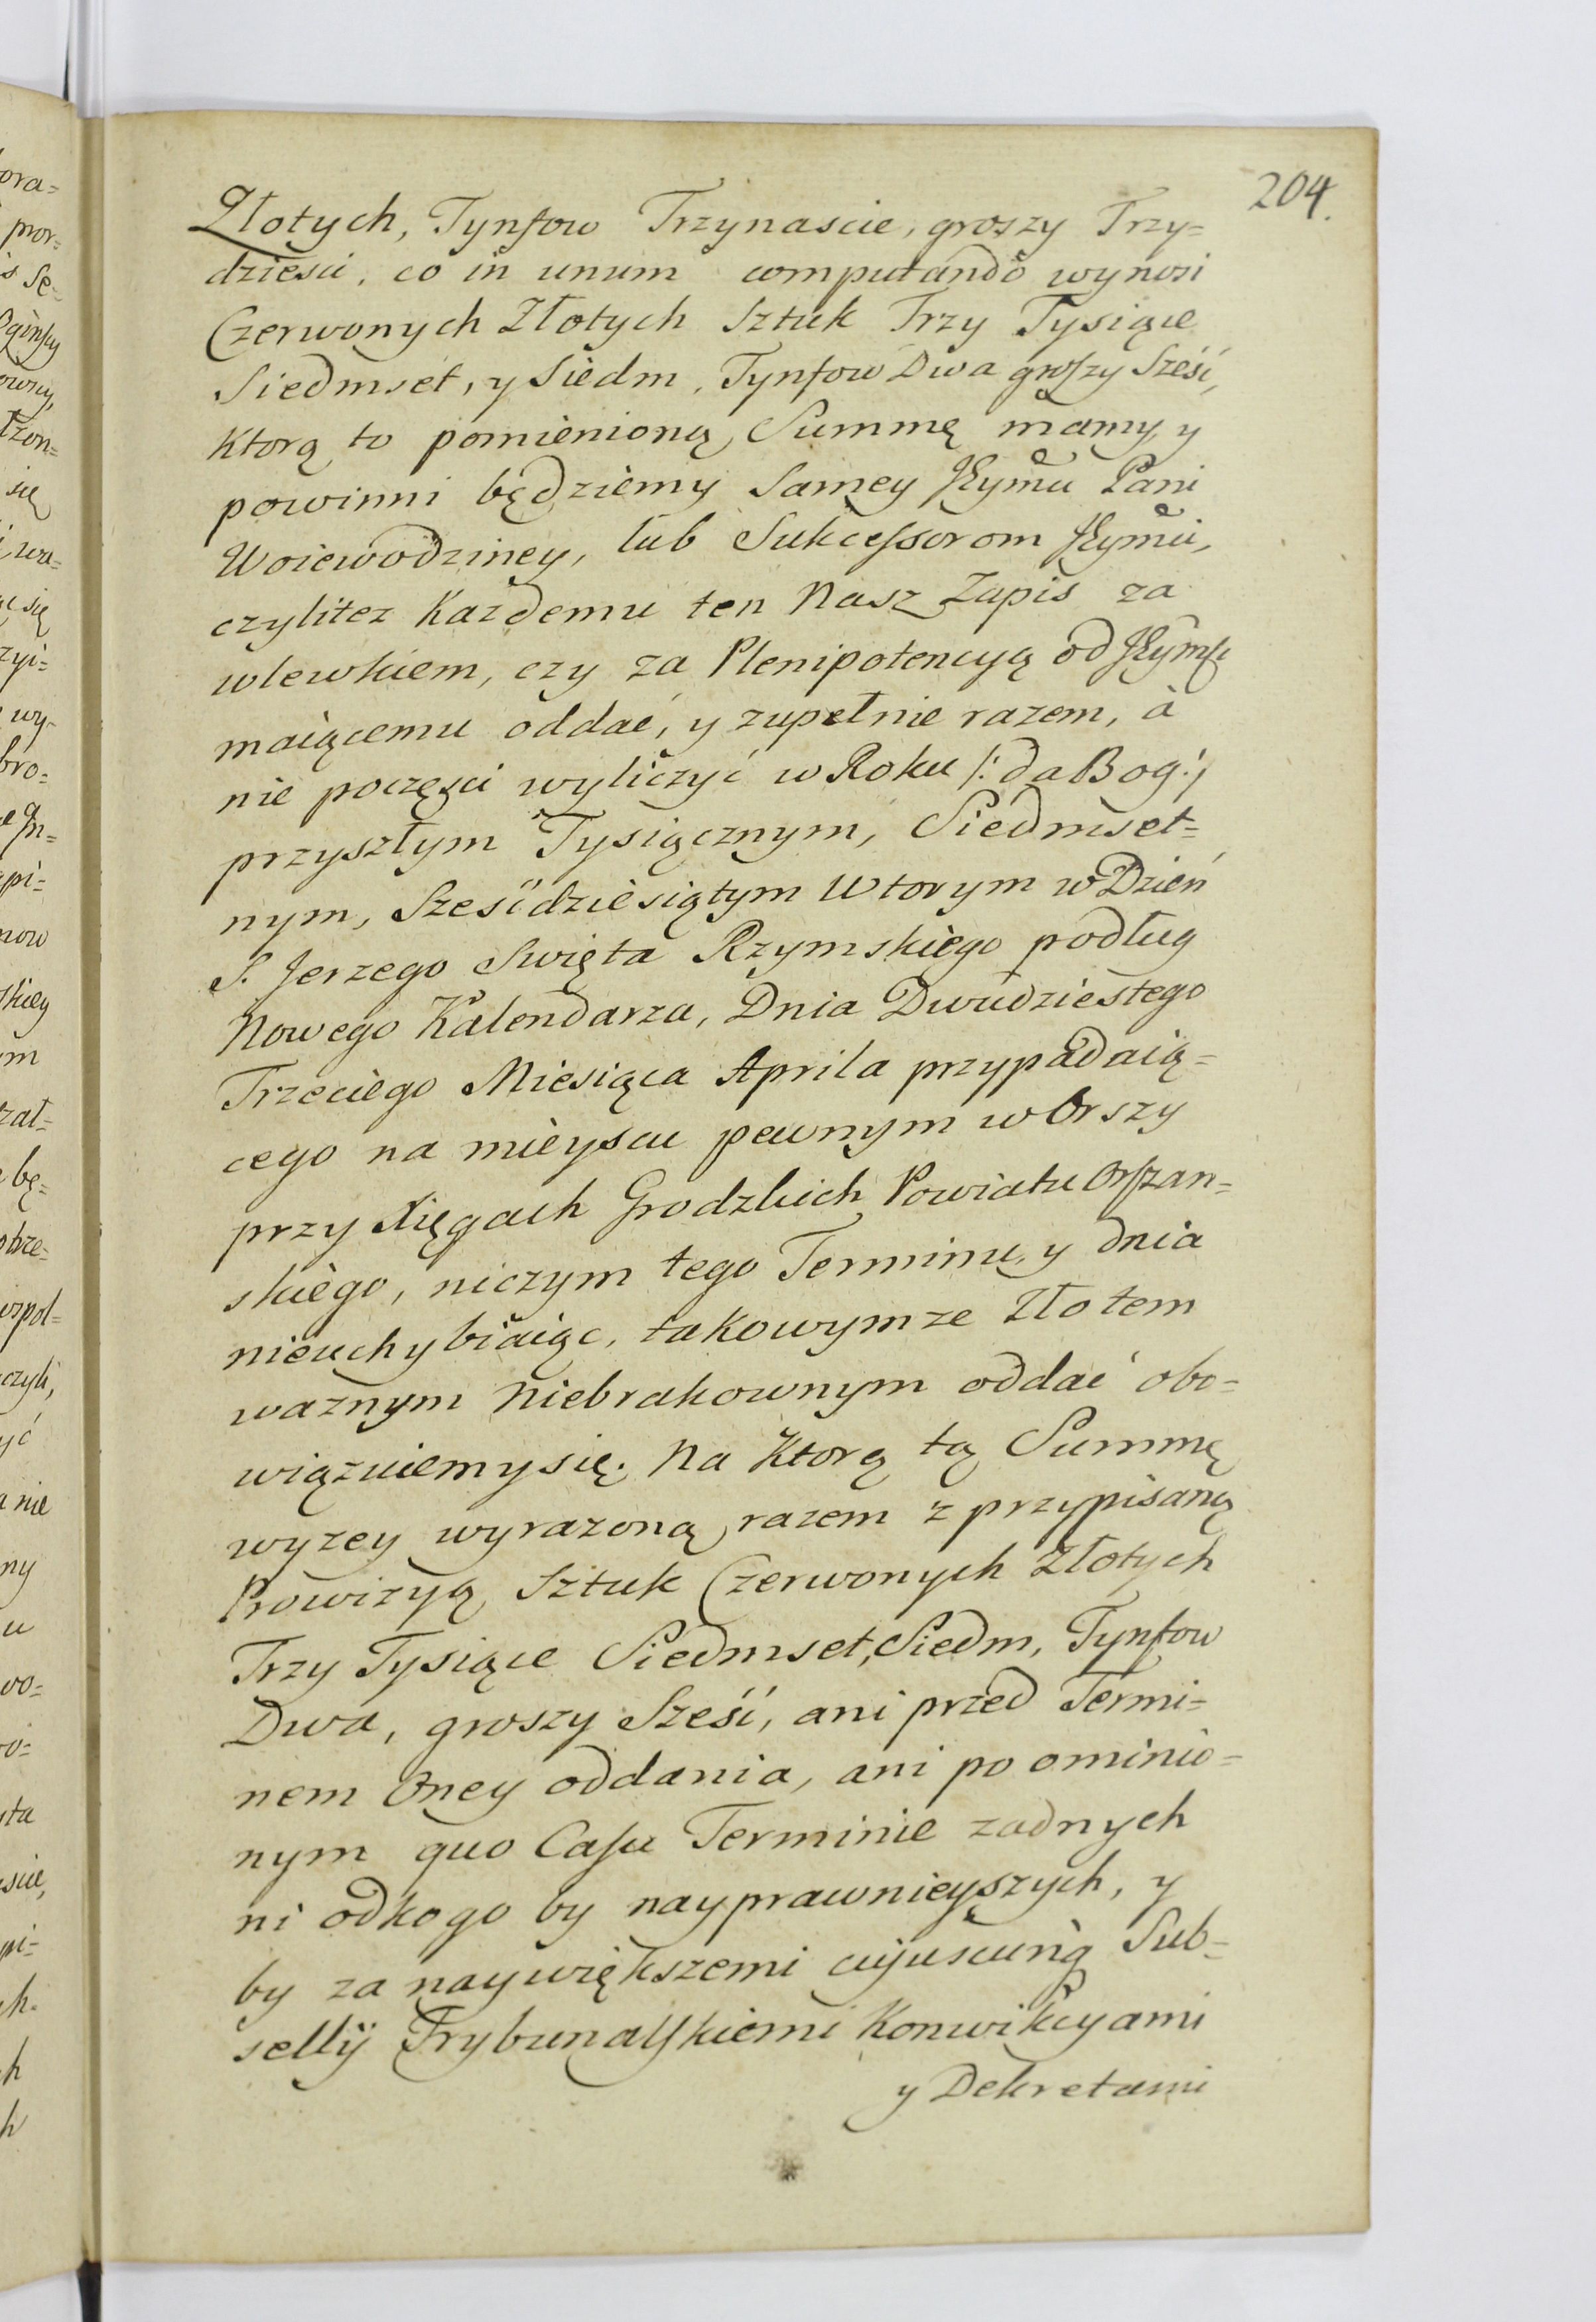 204.
Złotych, Tynfow Trzynascie, groszy Trzy=
dziesci, co in unum computando wynosi
Czerwonych Złotych Sztuk Trzy Tysiące
Siedmset, y Siedm, Tynfow Dwa groszy Sześć,
Ktorą to pomienioną Summę mamy, y
powinni będziemy Samey JEymci Pani
Woiewodziney, lub Sukcessorom JEymci,
czylitez Kazdemu ten Nasz Zapis za
wlewkiem, czy za Plenipotencyą od JEymći
maiącemu oddać, y zupełnie razem, à
nie poczęsci wyliczyć w Roku /: da Bog :/
przyszłym Tysiącznym, Siedmset=
nym, Sześćdziesiątym Wtorym w Dzień
S. Jerzego Swięta Rzymskiego podług
Nowego Kalendarza, Dnia Dwudziestego
Trzeciego Miesiąca Aprila przypadaią=
cego na mieyscu pewnym w Orszy
przy Xięgach Grodzkich Powiatu Orszan=
skiego, niczym tego Terminu, y dnia
nieuchybiaiąc, takowymze Złotem
waznym Niebrakownym oddać obo=
wiązuiemy się. Na Ktorą tą Summę
wyzey wyrazoną, razem z przypisaną
Prowizyą Sztuk Czerwonych Złotych
Trzy Tysiące Siedmset, Siedm, Tynfow
Dwa, groszy Sześć, ani przed Termi=
nem Oney oddania, ani po ominio=
nym quo Casu Terminie zadnych
ni odkogo by nayprawnieyszych, y
by za naywiększemi cujuscunq Sub=
sellij Trybunalskiemi Konwikcyami
y Dekretami
ora=
mor=
się
wa=
wy=
bro=
pi=
now
m
zał=
bę=
nie
ny
u
wo=
pi=
h